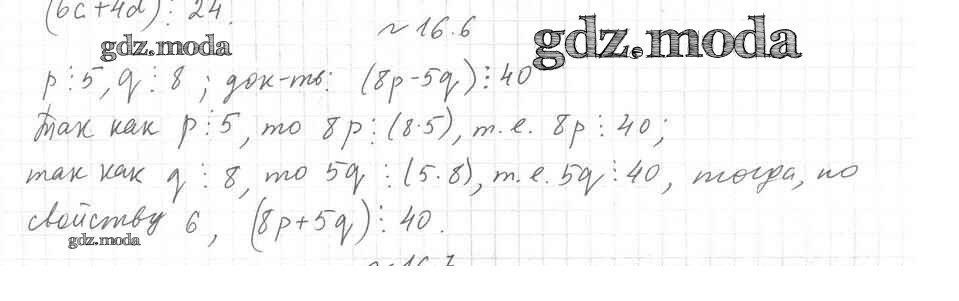 (6c+4d)⋮24.
~16.6
gdz.moda
gdz.moda
p⋮5, q⋮8; док-ть: (8p-5q)⋮40
Так как p⋮5, то 8p⋮(8·5), т.е. 8p⋮40;
так как q⋮8, то 5q⋮(5·8), т.е. 5q⋮40, тогда, по
свойству 6, (8p+5q)⋮40.
gdz.moda
~16.7